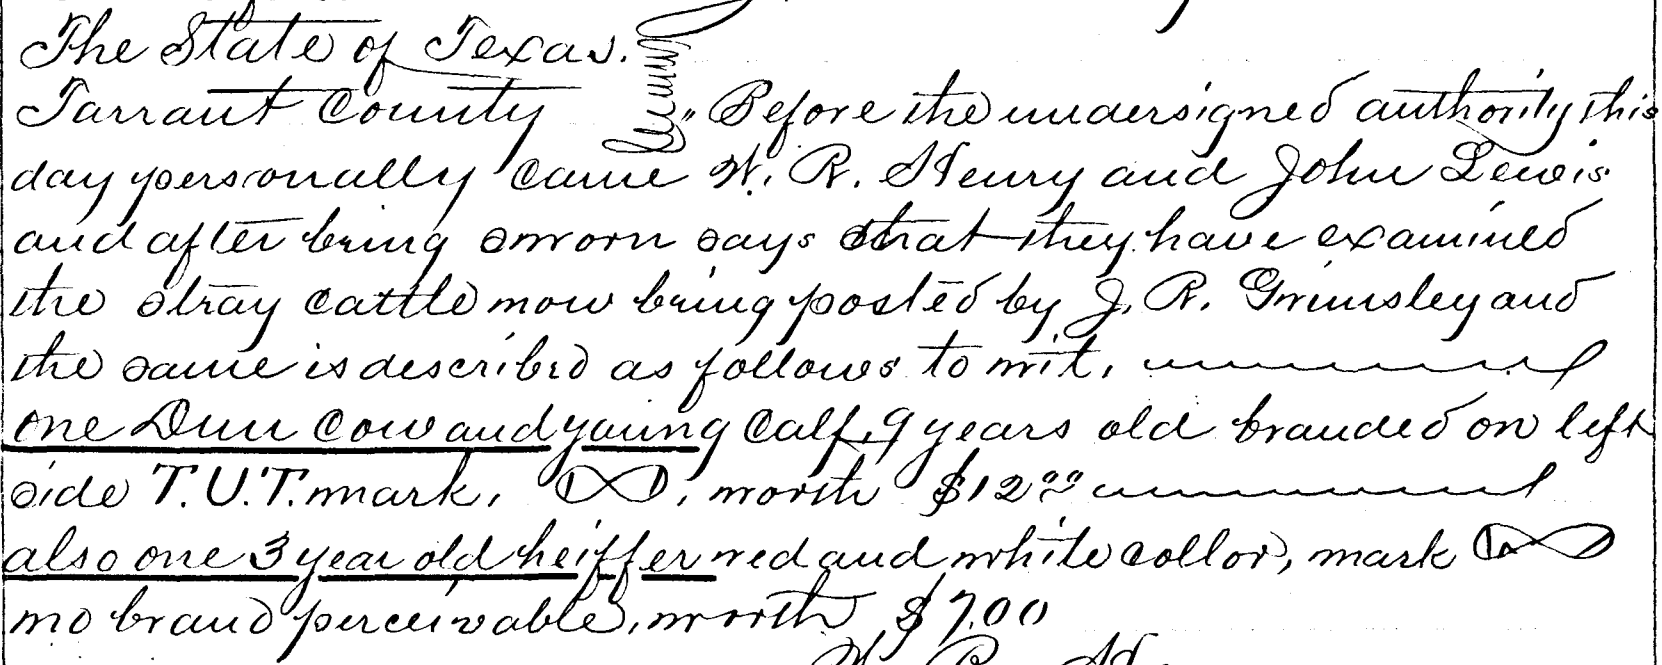 The State of Texas.
Tarrant County " Before the undersigned authority this
day personally came W. R. Henry and John Lewis
and after being sworn says that they have examined
the stray cattle now being posted by J. R. Grimsley and
the same is described as follows to wit.
one Dun Cow and young Calf, 9 years old branded on left
side T.U.T. mark, worth $12 00
also one 3 year old heiffer red and white collor, mark
no brand perceivable, worth $7.00
W. R. He